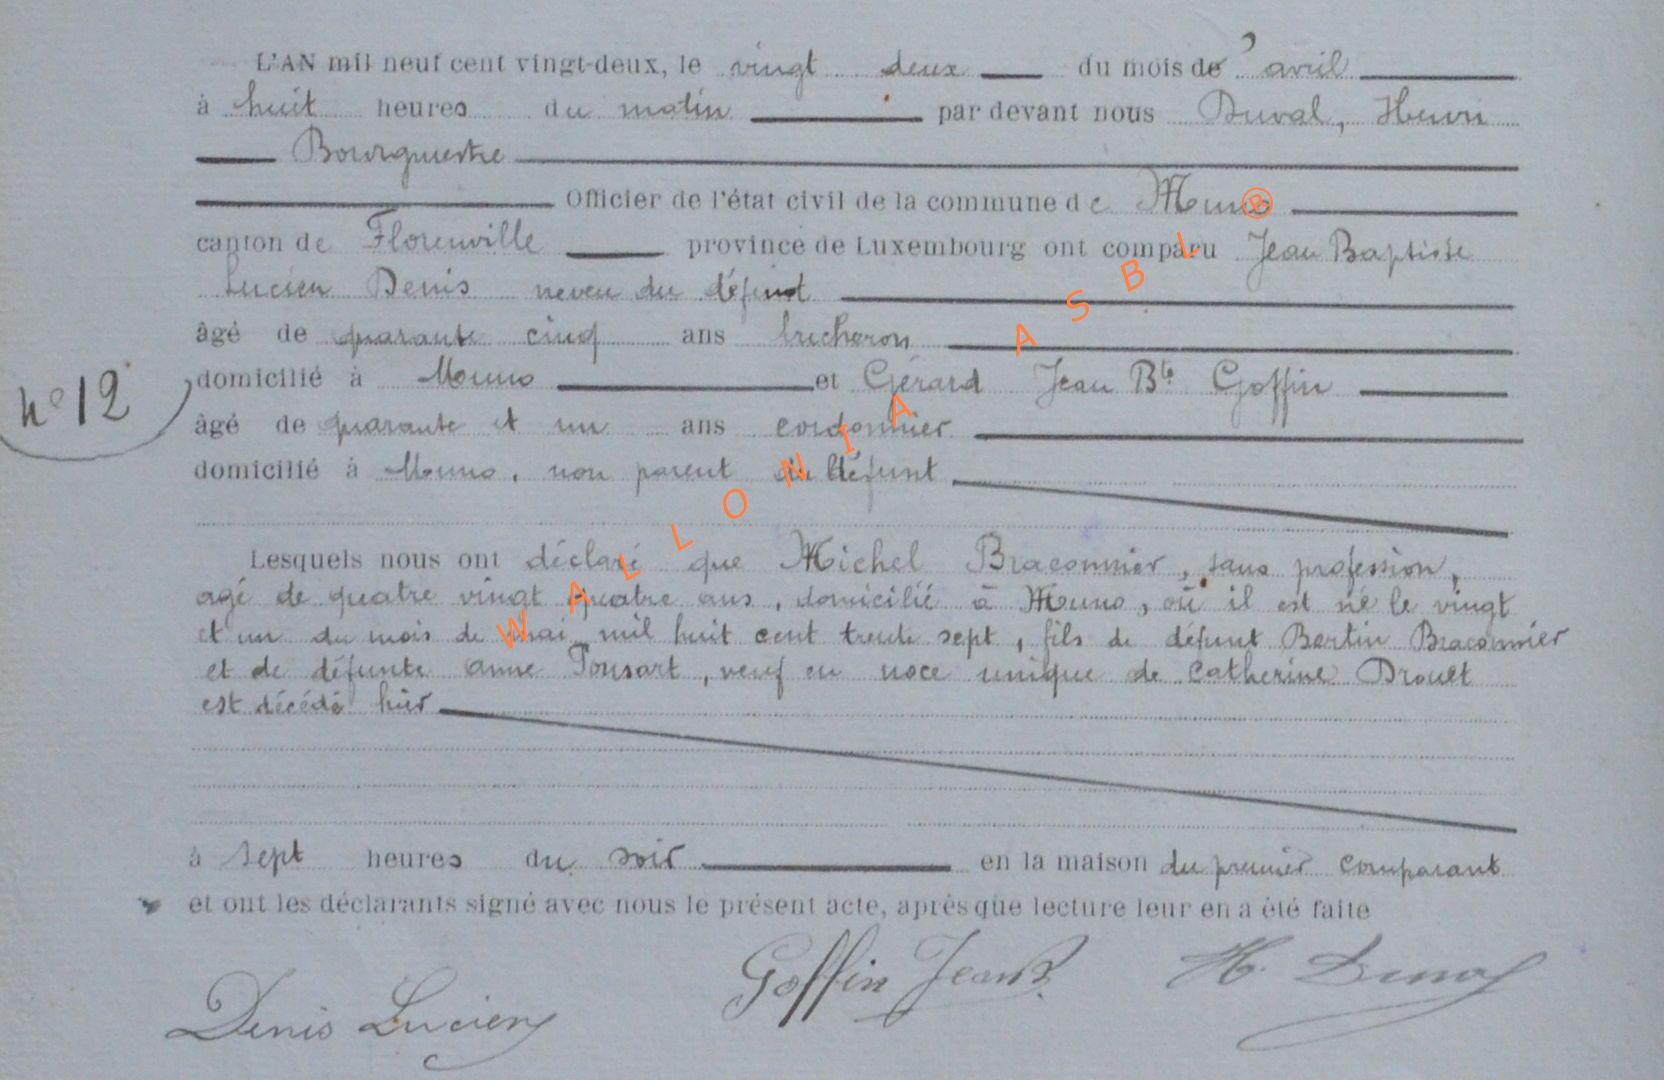 L'AN mil neuf cent vingt-deux, le vingt deux du mois de avril
à huit heures du matin par devant nous Duval, Henri
Bourgmestre
Officier de l'état civil de la commune de Muno
canton de Florenville province de Luxembourg ont comparu Jean Baptiste
Lucien Denis neveu du défunt
âgé de quarante cinq ans bucheron
domicilié à Muno et Gérard Jean Bte Goffin
nº 12
âgé de quarante et un ans cordonnier
domicilié à Muno, non parent du défunt
Lesquels nous ont déclaré que Michel Braconnier, sans profession,
agé de quatre vingt quatre ans, domicilié à Muno, où il est né le vingt
et un du mois de mai mil huit cent trente sept, fils de défunt Bertin Braconnier
et de défunte anne Ponsart, veuf en noce unique de Catherine Drouet
est décédé hier
à sept heures du soir en la maison du premier comparant
et ont les déclarants signé avec nous le présent acte, après que lecture leur en a été faite
Denis Lucien Goffin Jean B. H. Duval
WALLONIA ASBL ®